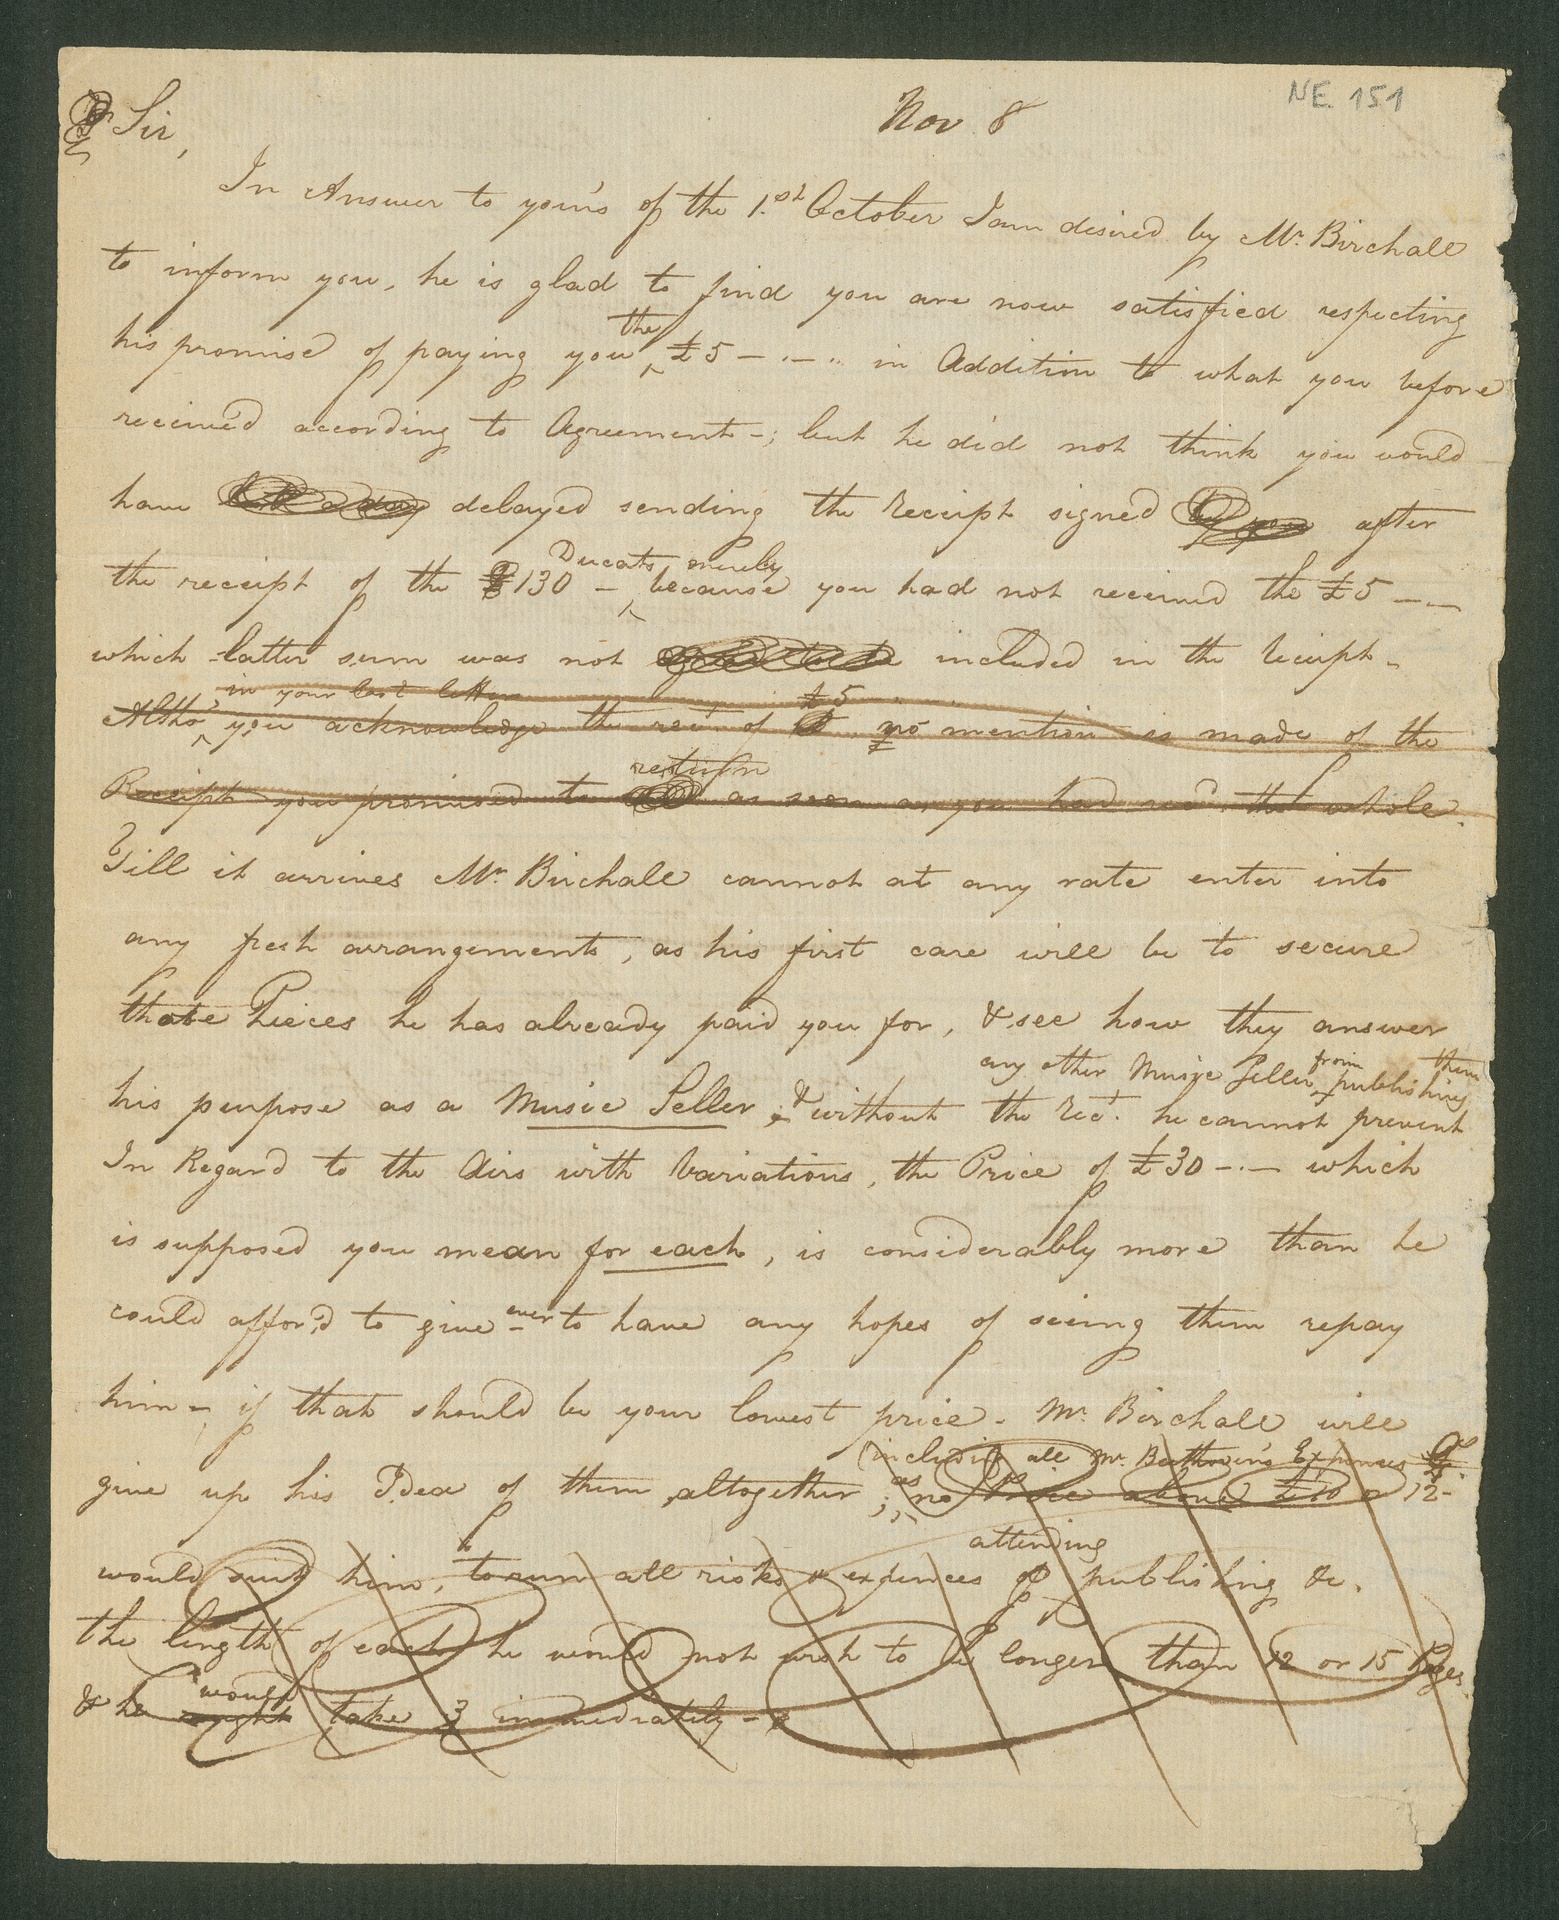 NE. 151
Sir, Nov 8
In Answer to your's of the 1.st October I am desired by Mr. Birchall
to inform you, he is glad to find you are now satisfied respecting
the
his promise of paying you £5 - . - .. in Addition to what you before
received according to Agreement -; but he did not think you would
have delayed sending the Receipt signed by you after
Ducats merely
the receipt of the 130 - because you had not received the £5 -.-
which latter sum was not included in the Receipt -
in your last letter £5
Altho' you acknowledge the rect. of no mention is made of the
return
Receipt you promised to as soon as you had recd. the whole.
Till it arrives Mr. Birchall cannot at any rate enter into
any fresh arrangements, as his first care will be to secure
those Pieces he has already paid you for, & see how they answer
any other Music Seller from publishing them
his purpose as a Music Seller; & without the Rect. he cannot prevent
In Regard to the Airs with Variations, the Price of £30 -.- which
is supposed you mean for each, is considerably more than he
could afford to give ever to have any hopes of seeing them repay
him -, if that should be your lowest price - Mr. Birchall will
(including all Mr. Beethoven's Expenses
give up his Idea of them altogether; as no Price above £10 or 12-
attending
would suit him, to run all risks & expences of publishing &c.
the length of each he would not wish to be longer than 12 or 15 Pages
would
& he might take 3 immediately -